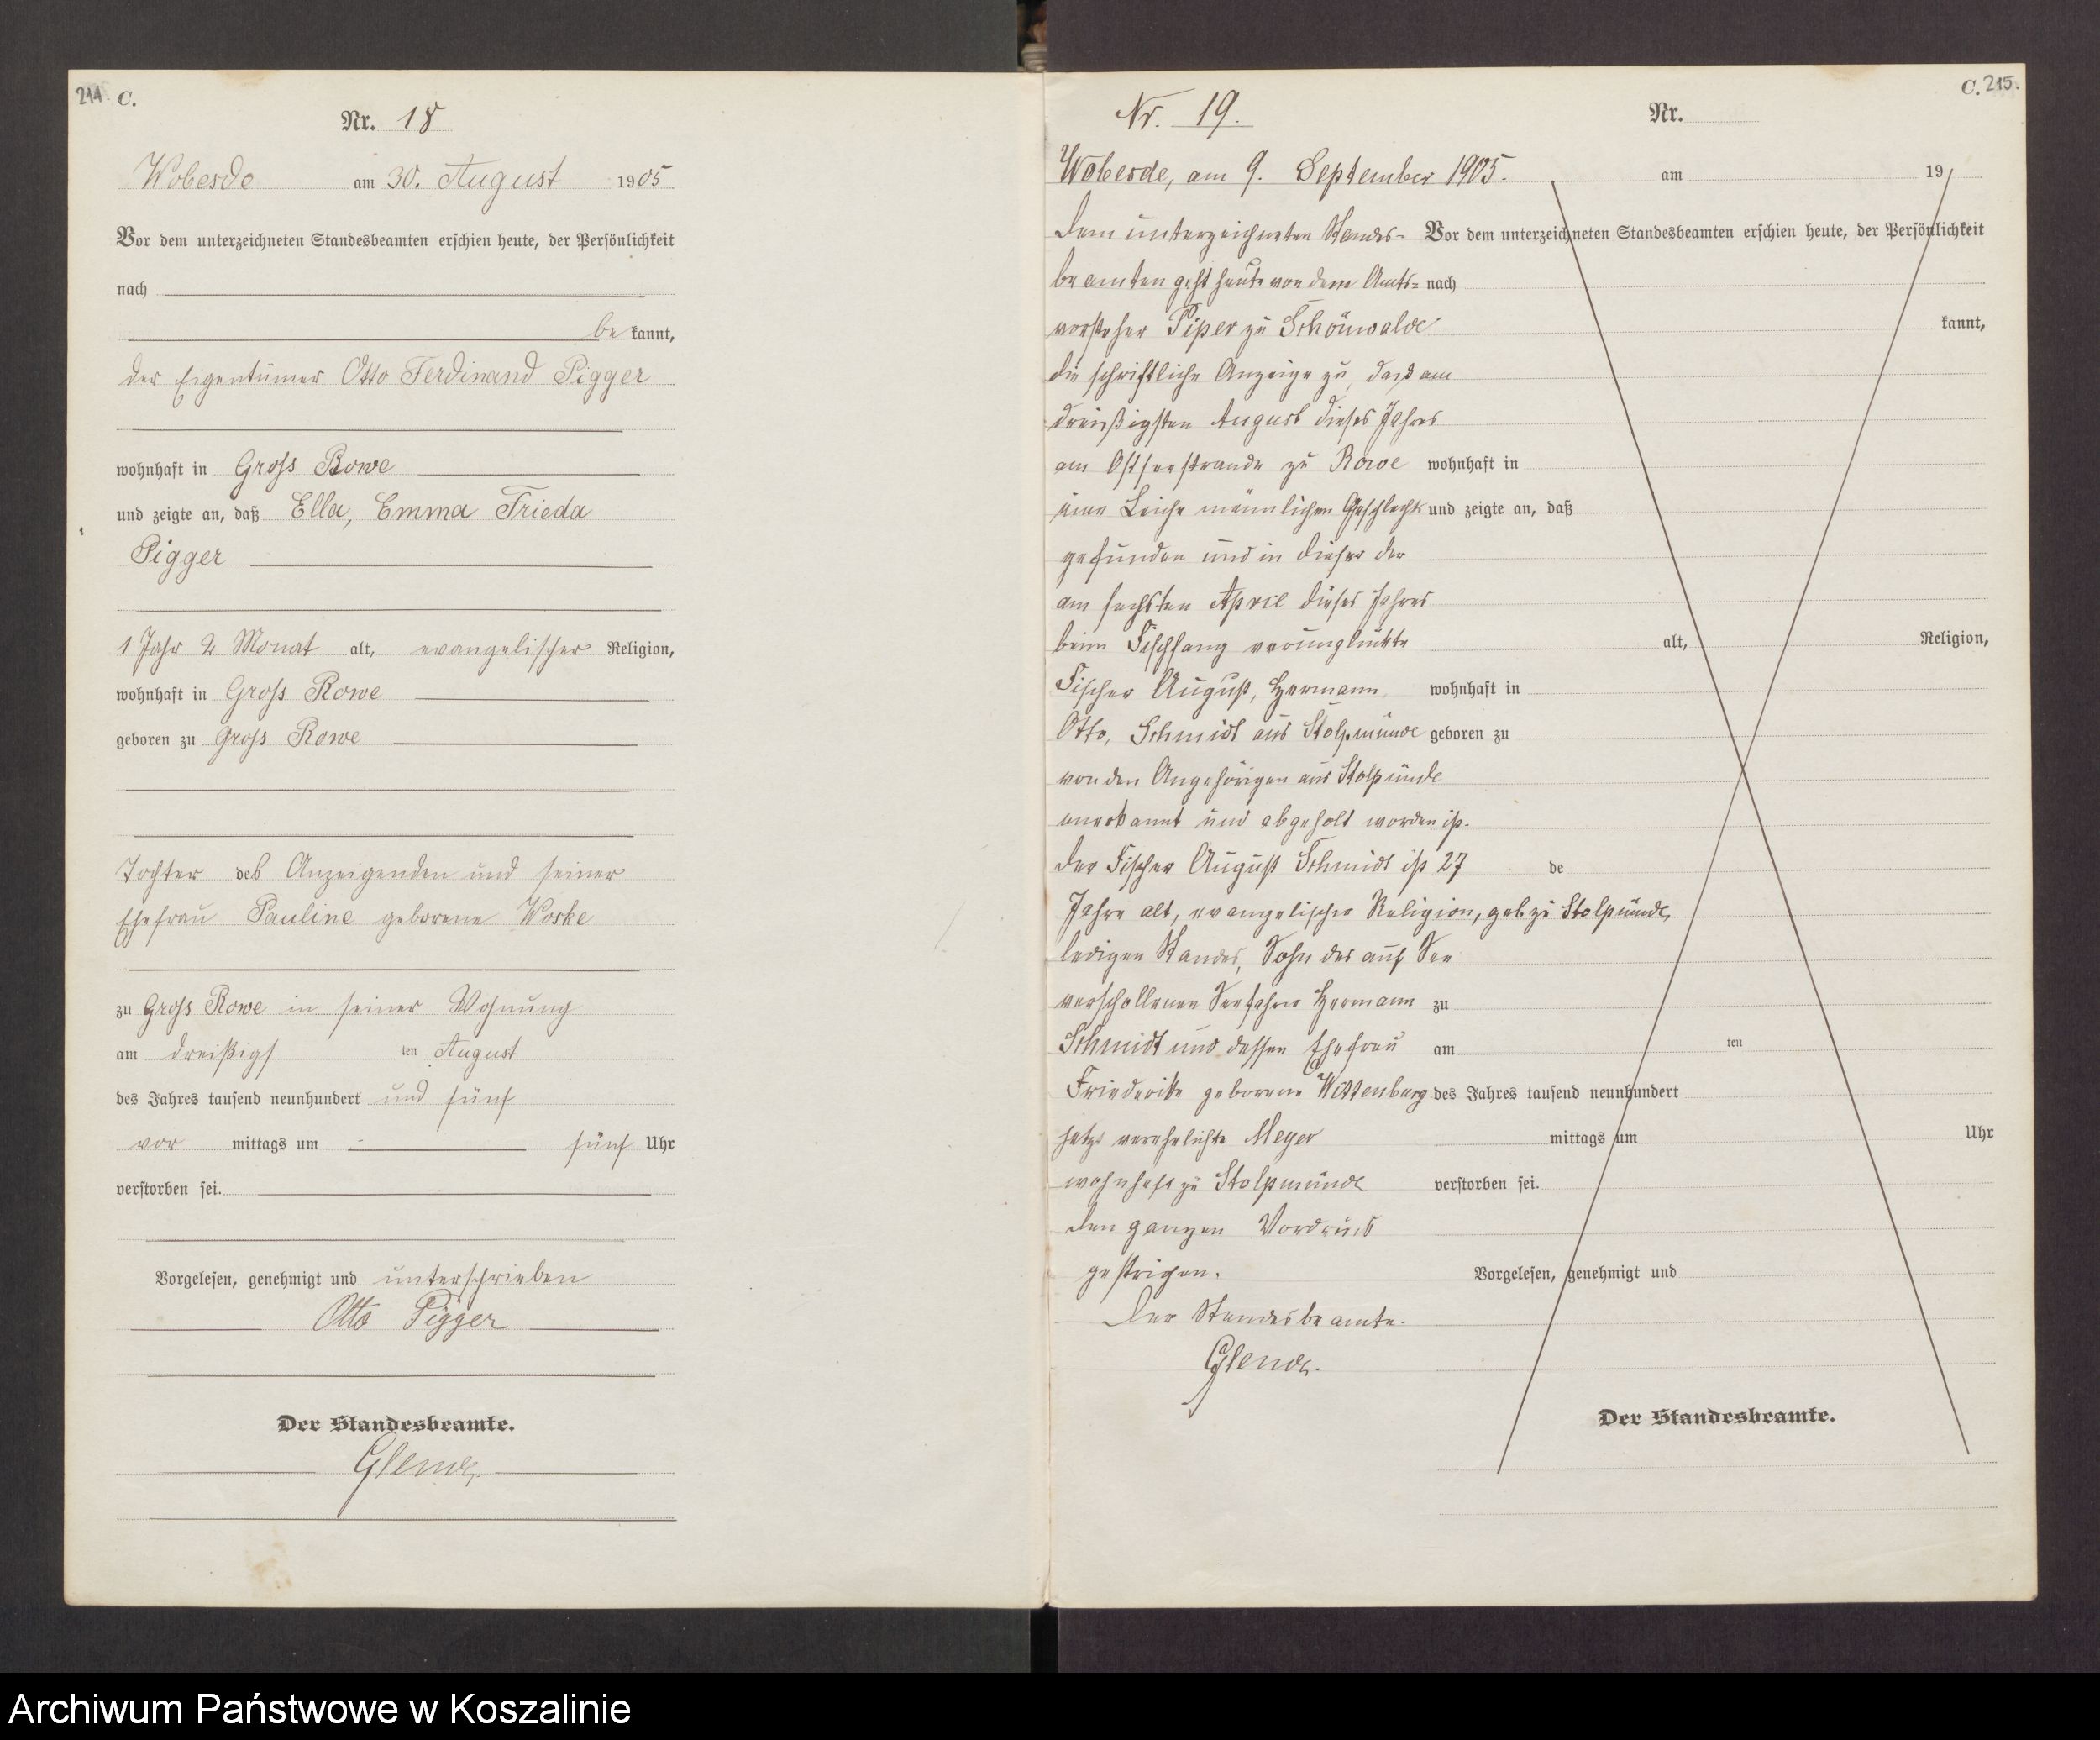 214. C.
Nr. 18
Wobesde am 30. August 1905
Vor dem unterzeichneten Standesbeamten erschien heute, der Persönlichkeit
nach
be kannt,
der Eigentümer Otto Ferdinand Pigger
wohnhaft in Gross Rowe
und zeigte an, daß Ella, Emma Frieda
Pigger
1 Jahr 2 Monat alt, evangelischer Religion,
wohnhaft in Gross Rowe
geboren zu Gross Rowe
Tochter des Anzeigenden und seiner
Ehefrau Pauline geborene Woske
zu Gross Rowe in seiner Wohnung
am dreißigs ten August
des Jahres tausend neunhundert und fünf
vor mittags um fünf Uhr
verstorben sei.
Vorgelesen, genehmigt und unterschrieben
Otto Pigger
Der Standesbeamte.
Glende.
C. 215.
Nr. 19.
Wobesde, am 9. September 1905.
Dem unterzeichneten Standes-
beamten geht heute von dem Amts-
vorsteher Piper zu Schönwalde
die schriftliche Anzeige zu, dass am
dreißigsten August dieses Jahres
am Ostseestrande zu Rowe
eine Leiche männlichen Geschlechts
gefunden und in dieser der
am sechsten April dieses Jahres
beim Fischfang verunglückte
Fischer August, Hermann
Otto, Schmidt aus Stolpmünde
von den Angehörigen aus Stolpmünde
anerkannt und abgeholt worden ist.
Der Fischer August Schmidt ist 27
Jahre alt, evangelischer Religion, geb zu Stolpmünde,
ledigen Standes, Sohn des auf See
verschollenen Seefahrer Hermann
Schmidt und dessen Ehefrau
Friederike geborene Wittenburg
jetzt verehelichte Meyer
wohnhaft zu Stolpmünde
den ganzen Vordruck
gestrichen.
Der Standesbeamte.
Glende.
Nr.
am 19
Vor dem unterzeichneten Standesbeamten erschien heute, der Persönlichkeit
nach
kannt,
wohnhaft in
und zeigte an, daß
alt, Religion,
wohnhaft in
geboren zu
de
zu
am ten
des Jahres tausend neunhundert
mittags um Uhr
verstorben sei.
Vorgelesen, genehmigt und
Der Standesbeamte.
Archiwum Państwowe w Koszalinie